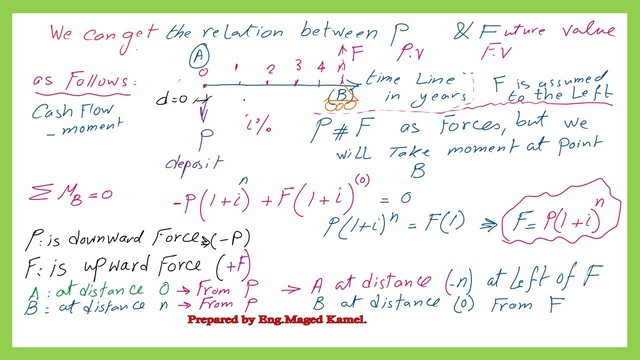 We can get the relation between P & Future value
P.V F.V
A F
0 1 2 3 4 n
as Follows:
time Line in years
F is assumed to the Left
(B)
d=0
Cash Flow
- moment
i%
P
deposit
P ≠ F as Forces, but we
will Take moment at point
B
ΣM_B = 0
-P(1+i)^n + F(1+i)^(0) = 0
P(1+i)^n = F(1) ⇒ F = P(1+i)^n
P: is downward Force ⇒ (-P)
F: is upward Force (+F)
A: at distance 0 → From P → A at distance (-n) at Left of F
B: at distance n → From P B at distance (0) From F
Prepared by Eng.Maged Kamel.